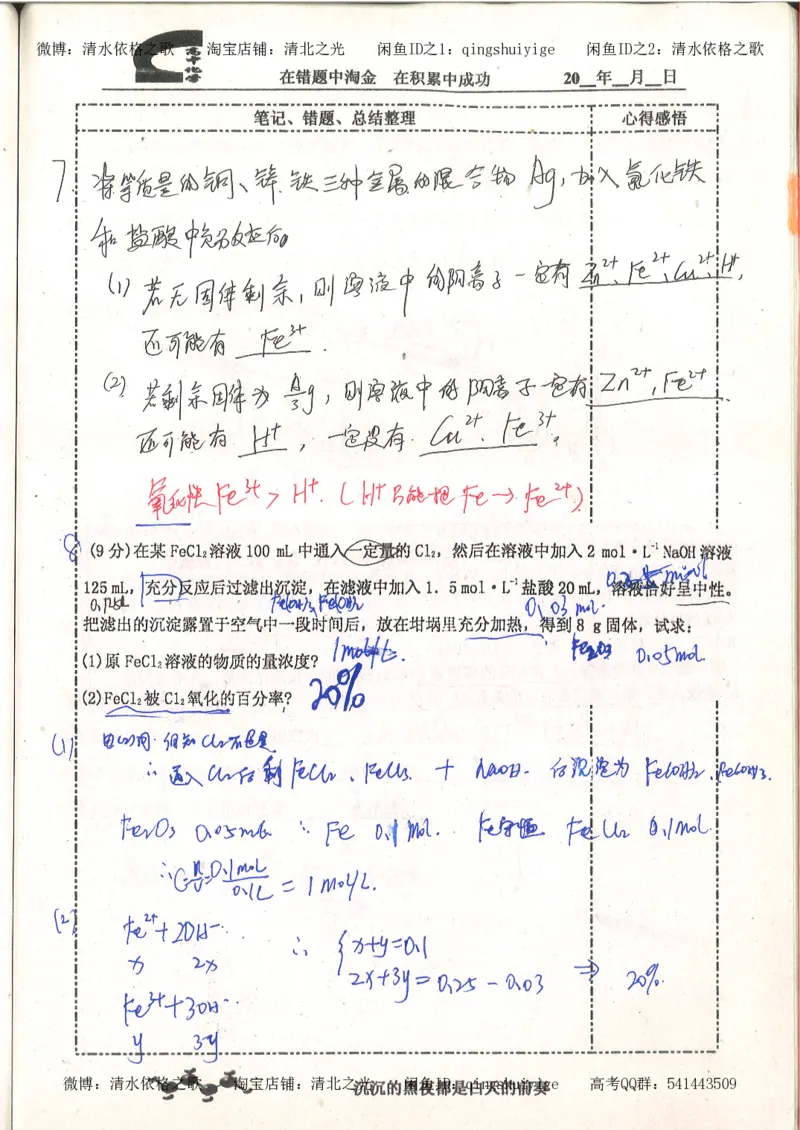 微博：清水依格之歌 淘宝店铺：清北之光 闲鱼ID之1：qingshuiyige 闲鱼ID之2：清水依格之歌
在错题中淘金 在积累中成功 20__年__月__日
笔记、错题、总结整理 心得感悟
7. 将等质量的铜、锌、铁三种金属的混合物 Ag，加入氯化铁
和盐酸中充分反应后
(1) 若无固体剩余，则溶液中的阳离子一定有 Zn²⁺、Fe²⁺、Cu²⁺、H⁺，
还可能有 Fe³⁺ .
(2) 若剩余固体为 A/3 g，则溶液中的阳离子一定有 Zn²⁺，Fe²⁺
还可能有 H⁺ ，一定没有 Cu²⁺、Fe³⁺。
氧化性 Fe³⁺ > H⁺. (H⁺只能把 Fe → Fe²⁺)
8 (9分)在某FeCl₂溶液100 mL中通入一定量的Cl₂，然后在溶液中加入2 mol·L⁻¹NaOH溶液
125 mL，充分反应后过滤出沉淀，在滤液中加入1.5mol·L⁻¹盐酸20 mL，溶液恰好呈中性。
0.125L Fe(OH)₃、Fe(OH)₂ 0.03 mol.
把滤出的沉淀露置于空气中一段时间后，放在坩埚里充分加热，得到8 g固体，试求：
(1)原FeCl₂溶液的物质的量浓度? 1mol/L. Fe₂O₃ 0.05mol
(2)FeCl₂被Cl₂氧化的百分率? 20%
(1) 由(2)问. 得知 Cl₂不足量
∴ 通入Cl₂后剩FeCl₂、FeCl₃ + NaOH. 后沉淀为 Fe(OH)₂、Fe(OH)₃.
Fe₂O₃ 0.05mol ∴ Fe 0.1mol. Fe守恒 FeCl₂ 0.1mol.
∴ C=n/V=0.1mol/0.1L = 1mol/L.
(2) Fe²⁺+2OH⁻..
x 2x
Fe³⁺+3OH⁻..
y 3y
∴ { x+y=0.1
2x+3y=0.25-0.03 ⇒ 20%.
微博：清水依格之歌 淘宝店铺：清北之光 闲鱼ID：qingshuiyige 高考QQ群：541443509
沉沉的黑夜都是白天的前奏